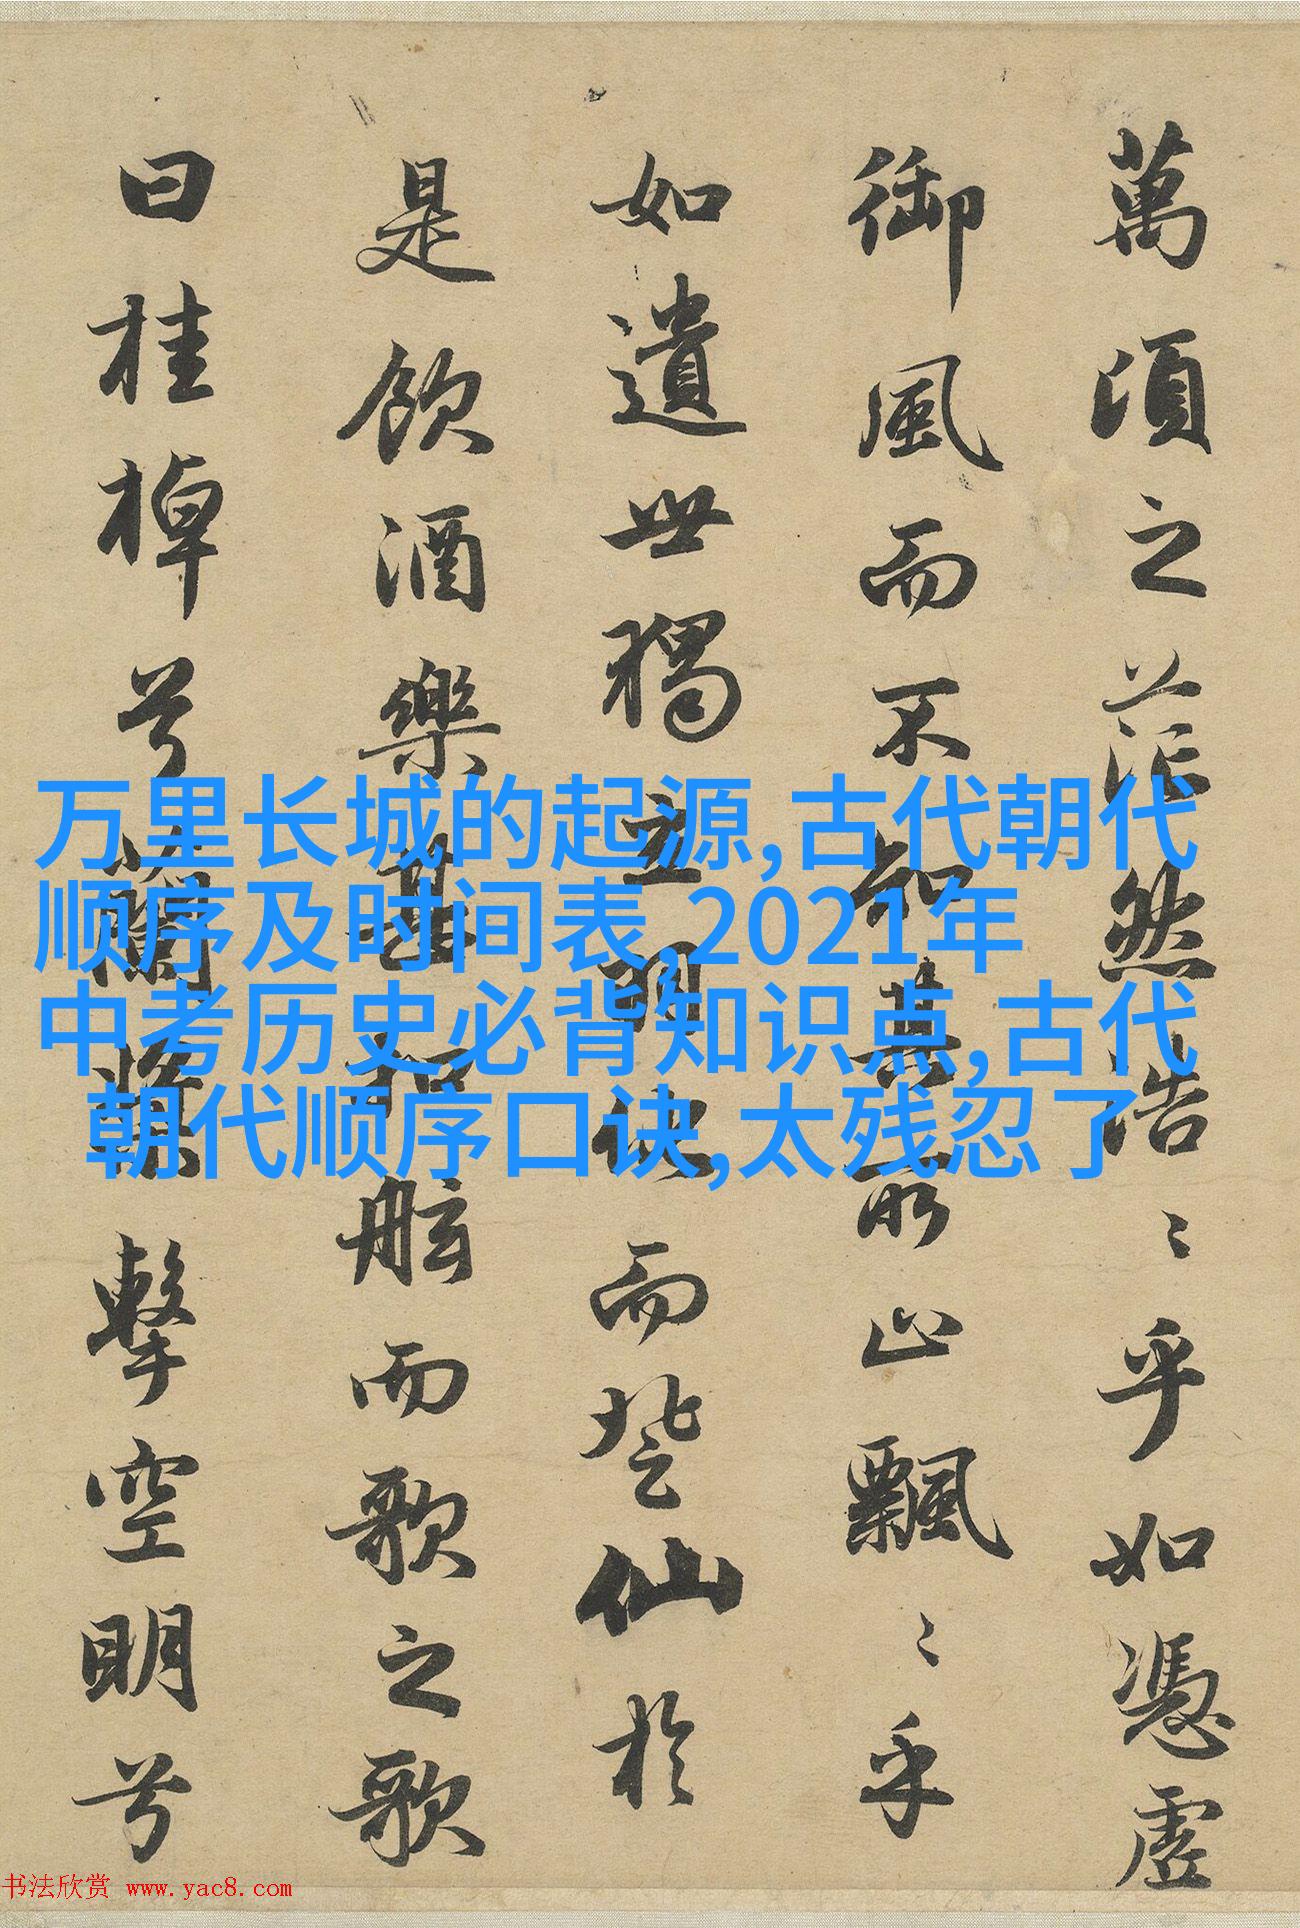 萬頃之茫然浩〻乎如憑虛
御風而不知其所止飄〻乎
如遺世獨立羽化而登仙於
是飲酒樂甚扣舷而歌之歌
曰桂棹兮蘭槳擊空明兮
万里长城的起源,古代朝代
顺序及时间表,2021年
中考历史必背知识点,古代
朝代顺序口诀,太残忍了
书法欣赏 www.yac8.com